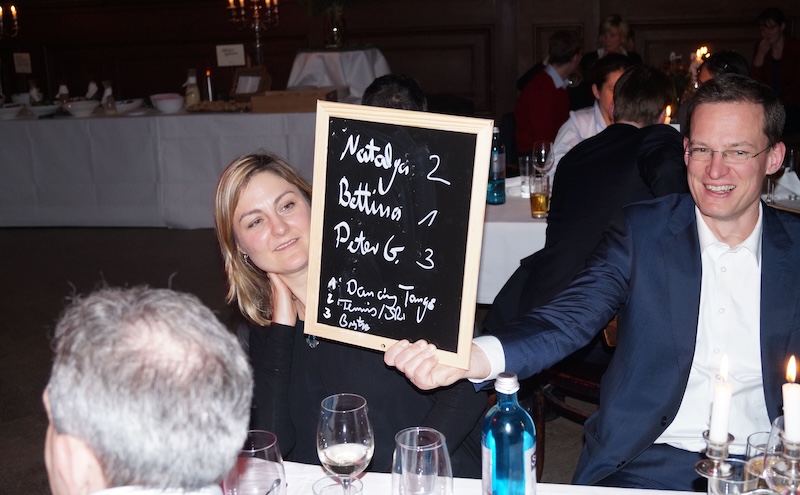 Natalya 2
Bettina 1
Peter G. 3
1: Dancing Tango
2 Tennis/
3